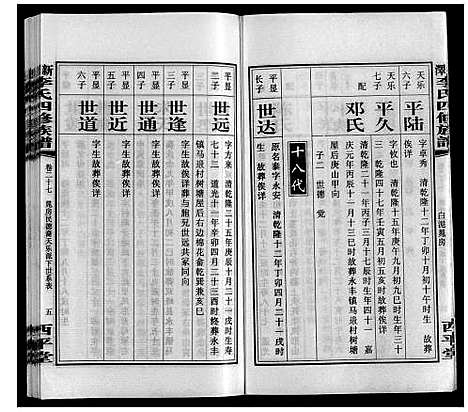 新李氏四修族譜
白泥晁房
西平堂
天乐
六子
平陆
字卓秀 清乾隆二十二年丁卯十月初十午时生 故葬
俟详
天乐
七子
平久
字攸也 清乾隆十五年庚午九月初九巳时生
三 乾隆四十七年壬寅五月初五亥时故葬俟详
配
邓氏
清乾隆二十一年丙子三月十七辰时生 年四十一 嘉
庆元年丙辰十一月十三巳时故葬永丰镇马埌村树塘
屋后庚山甲向
子二 世德 觉
十八代
平显
长子
世达
原名泰字永安 清乾隆十二年丁卯十月二十一戌时
生 故葬俟详
平显
二子
世远
字方来 清乾隆二十五年庚辰十月二十一戌时生 寿
七十一 道光十年辛卯四月二十三酉时终葬永丰
镇马埌村树塘屋后右边棉花畲乾巽兼亥巳
平显
三子
世逢
字 生故葬俟详葬与胞兄世远共冢同向
平显
四子
世通
字 生故葬俟详
平显
五子
世近
字 生故葬俟详
平显
六子
世道
字 生故葬俟详
新李氏四修族譜
卷二十七
晁房民德裔天乐派下世系表
五
西平堂